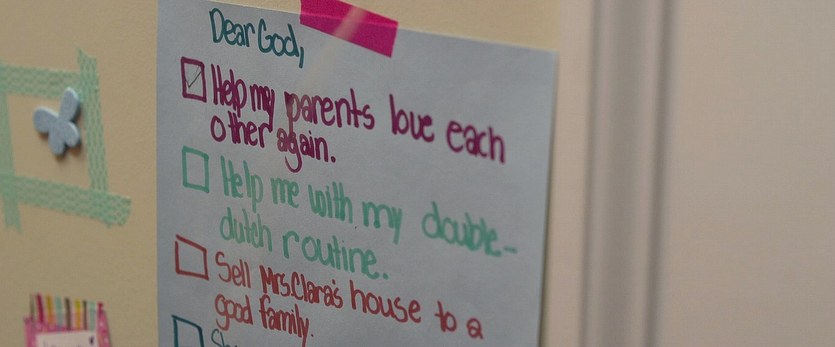 Dear God,
Help my parents love each
other again.
Help me with my double-
dutch routine.
Sell Mrs.Clara's house to a
good family.